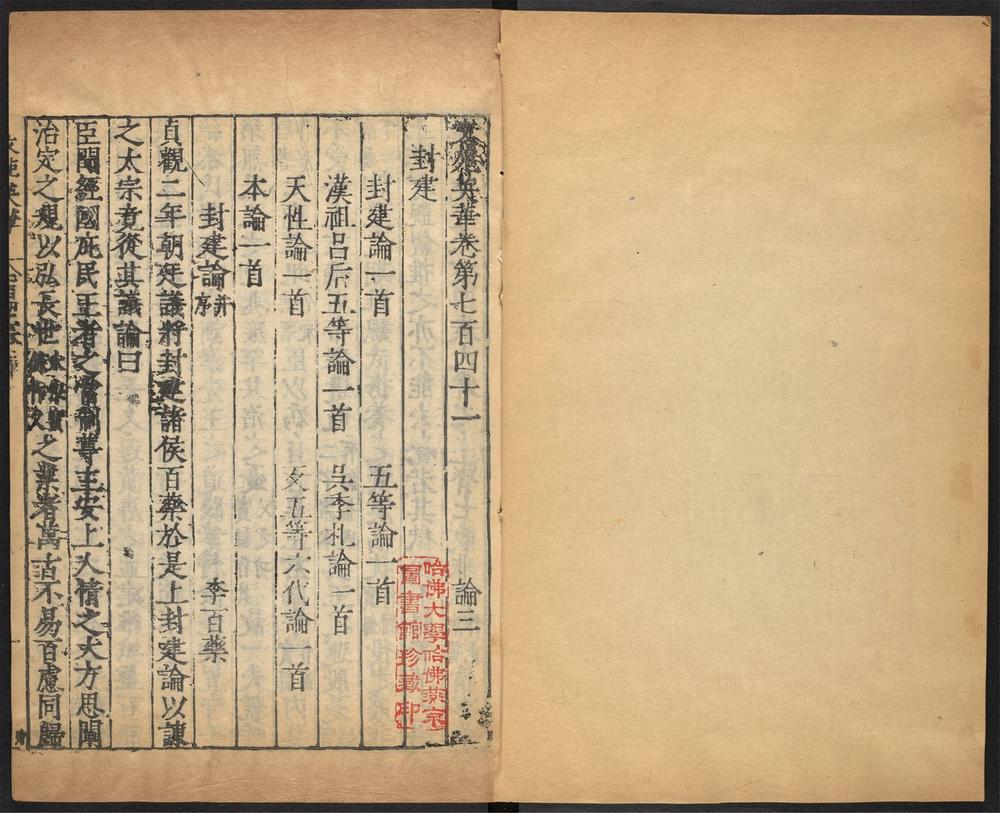 文苑英華卷第七百四十一 論三
封建
封建論一首 五等論一首
漢祖呂后五等論一首 吳季札論一首
天性論一首 文五等六代論一首
本論一首
封建論并序 李百藥
貞觀二年朝廷議將封建諸侯百藥於是上封建論以諫
之太宗竟從其議論曰
臣聞經國庇民王者之常制尊主安上人情之大方思闡
治定之規以弘長世之業者萬古不易百慮同歸
哈佛大學哈佛燕京
圖書館珍藏印